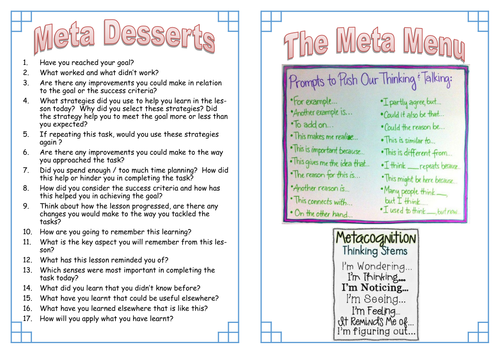 Meta Desserts
1. Have you reached your goal?
2. What worked and what didn't work?
3. Are there any improvements you could make in relation
to the goal or the success criteria?
4. What strategies did you use to help you learn in the les-
son today? Why did you select these strategies? Did
the strategy help you to meet the goal more or less than
you expected?
5. If repeating this task, would you use these strategies
again ?
6. Are there any improvements you could make to the way
you approached the task?
7. Did you spend enough / too much time planning? How did
this help or hinder you in completing the task?
8. How did you consider the success criteria and how has
this helped you in achieving the goal?
9. Think about how the lesson progressed, are there any
changes you would make to the way you tackled the
tasks?
10. How are you going to remember this learning?
11. What is the key aspect you will remember from this les-
son?
12. What has this lesson reminded you of?
13. Which senses were most important in completing the
task today?
14. What did you learn that you didn't know before?
15. What have you learnt that could be useful elsewhere?
16. What have you learned elsewhere that is like this?
17. How will you apply what you have learnt?
The Meta Menu
Prompts to Push Our Thinking & Talking:
• For example...
• Another example is...
• To add on...
• This makes me realize...
• This is important because...
• This gives me the idea that...
• The reason for this is...
• Another reason is...
• This connects with...
• On the other hand...
• I partly agree, but...
• Could it also be that...
• Could the reason be...
• This is similar to...
• This is different from...
• I think ___ repeats because...
• This might be here because...
• Many people think___,
but I think...
• I used to think___, but now...
Metacognition
Thinking Stems
I'm Wondering...
I'm Thinking...
I'm Noticing...
I'm Seeing...
I'm Feeling...
It Reminds Me of...
I'm figuring out...